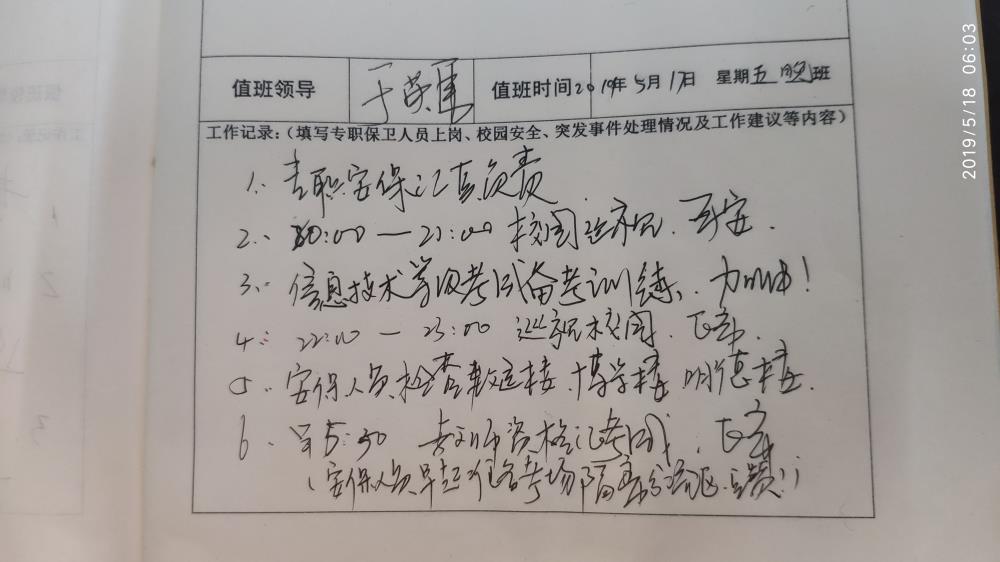 值班领导 于荣军 值班时间2019年5月17日 星期五 晚班
工作记录:(填写专职保卫人员上岗、校园安全、突发事件处理情况及工作建议等内容)
1. 专职安保认真负责
2. 20:00—21:00 校园巡视. 平安.
3. 信息技术学段考试备考训练,加油!
4. 22:00—23:00 巡视校园. 正常.
5. 安保人员检查教学楼、博学楼、明德楼.
6. 早5:30 教师资格证考试. 正常
(安保人员早起准备考场隔离分流区.点赞!)
2019/5/18 06:03